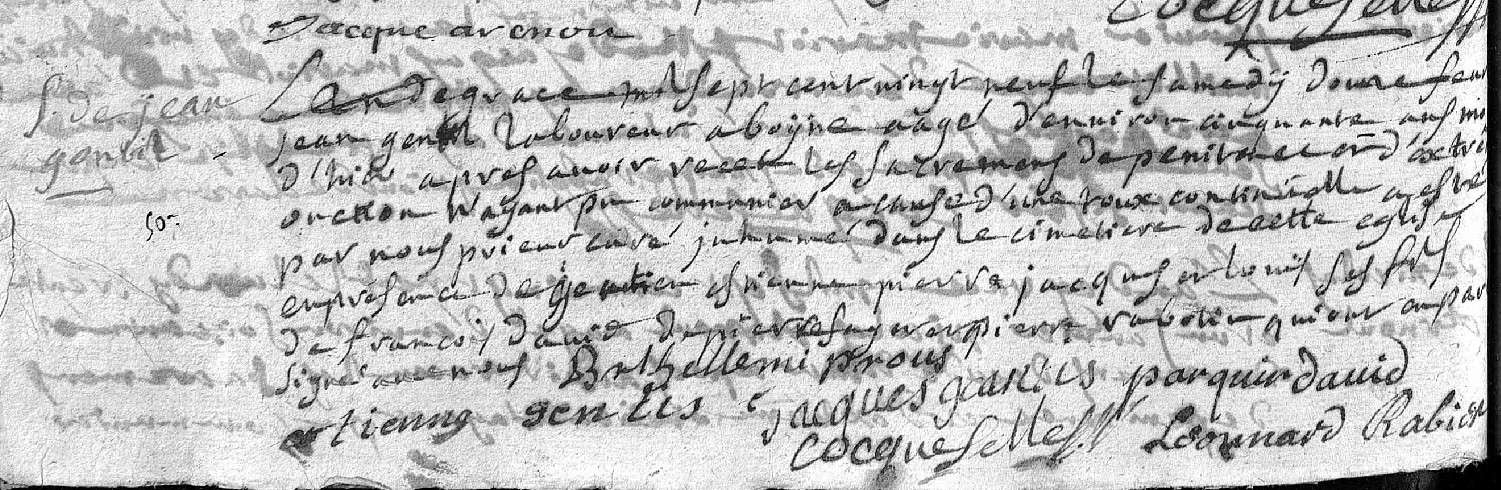 Jacque arenou
Cocqueselle
S. de jean
gentil
50.
L'an de grace mil sept cent vingt neuf le samedy douze feur
jean gentil laboureur a boyne aagé d'environ cinquante ans
d'hier apres avoir receu les sacremens de penitence et d'extre
onction n'ayant pu communier a cause d'une toux continuelle a esté
par nous prieur curé inhumé dans le cimetiere de cette eglise
en presence de estienne pierre jacques et louis ses fils
de francois david de pierre et pierre qui ont en par
signé avec nous Berthellemi prous
etienne gentils jacques gentils parquier david
Cocqueselle Leonnard Rabier